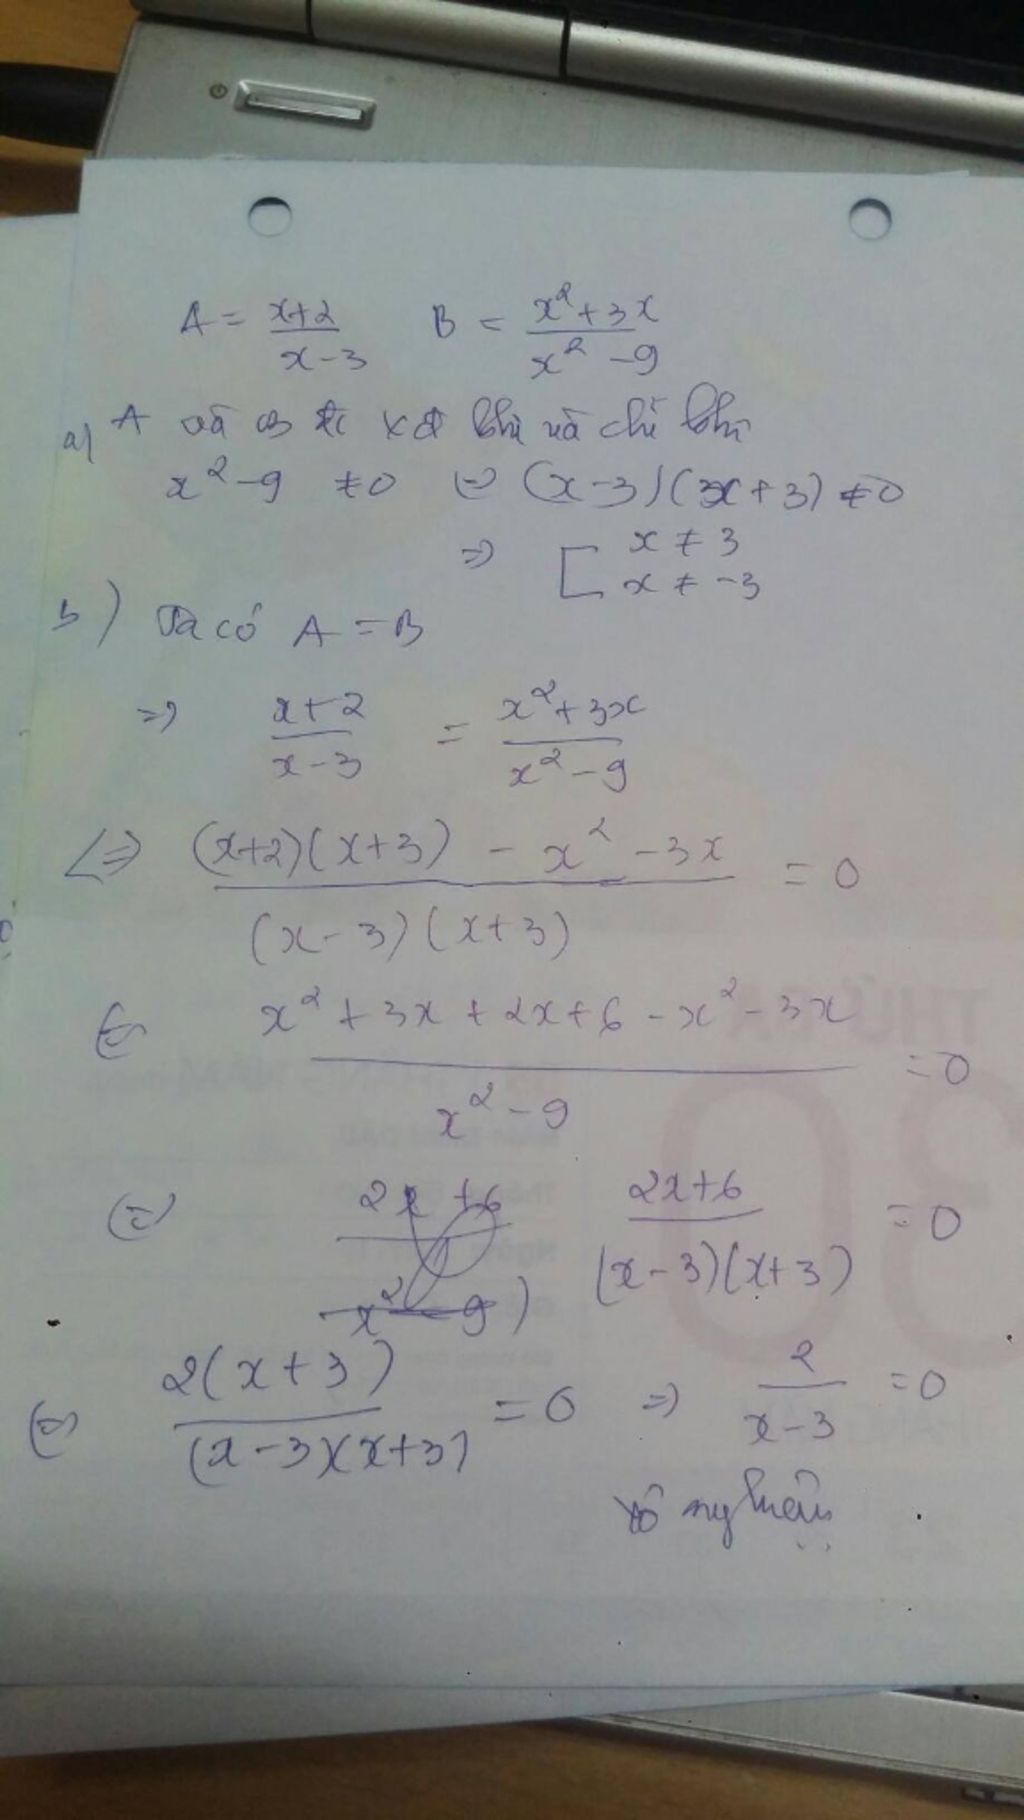 A = (x+2)/(x-3) B = (x²+3x)/(x²-9)
a) A và B xđ khi và chỉ khi
x²-9 ≠0 <=> (x-3)(x+3) ≠0
=> [ x ≠ 3
x ≠ -3
b) Ta có A = B
=> (x+2)/(x-3) = (x²+3x)/(x²-9)
<=> ((x+2)(x+3) - x² -3x)/((x-3)(x+3)) = 0
<=> (x² + 3x + 2x + 6 - x² - 3x)/(x²-9) =0
<=> (2x+6)/((x-3)(x+3)) =0
<=> 2(x+3)/((x-3)(x+3)) = 0 => 2/(x-3) =0
vô nghiệm
30